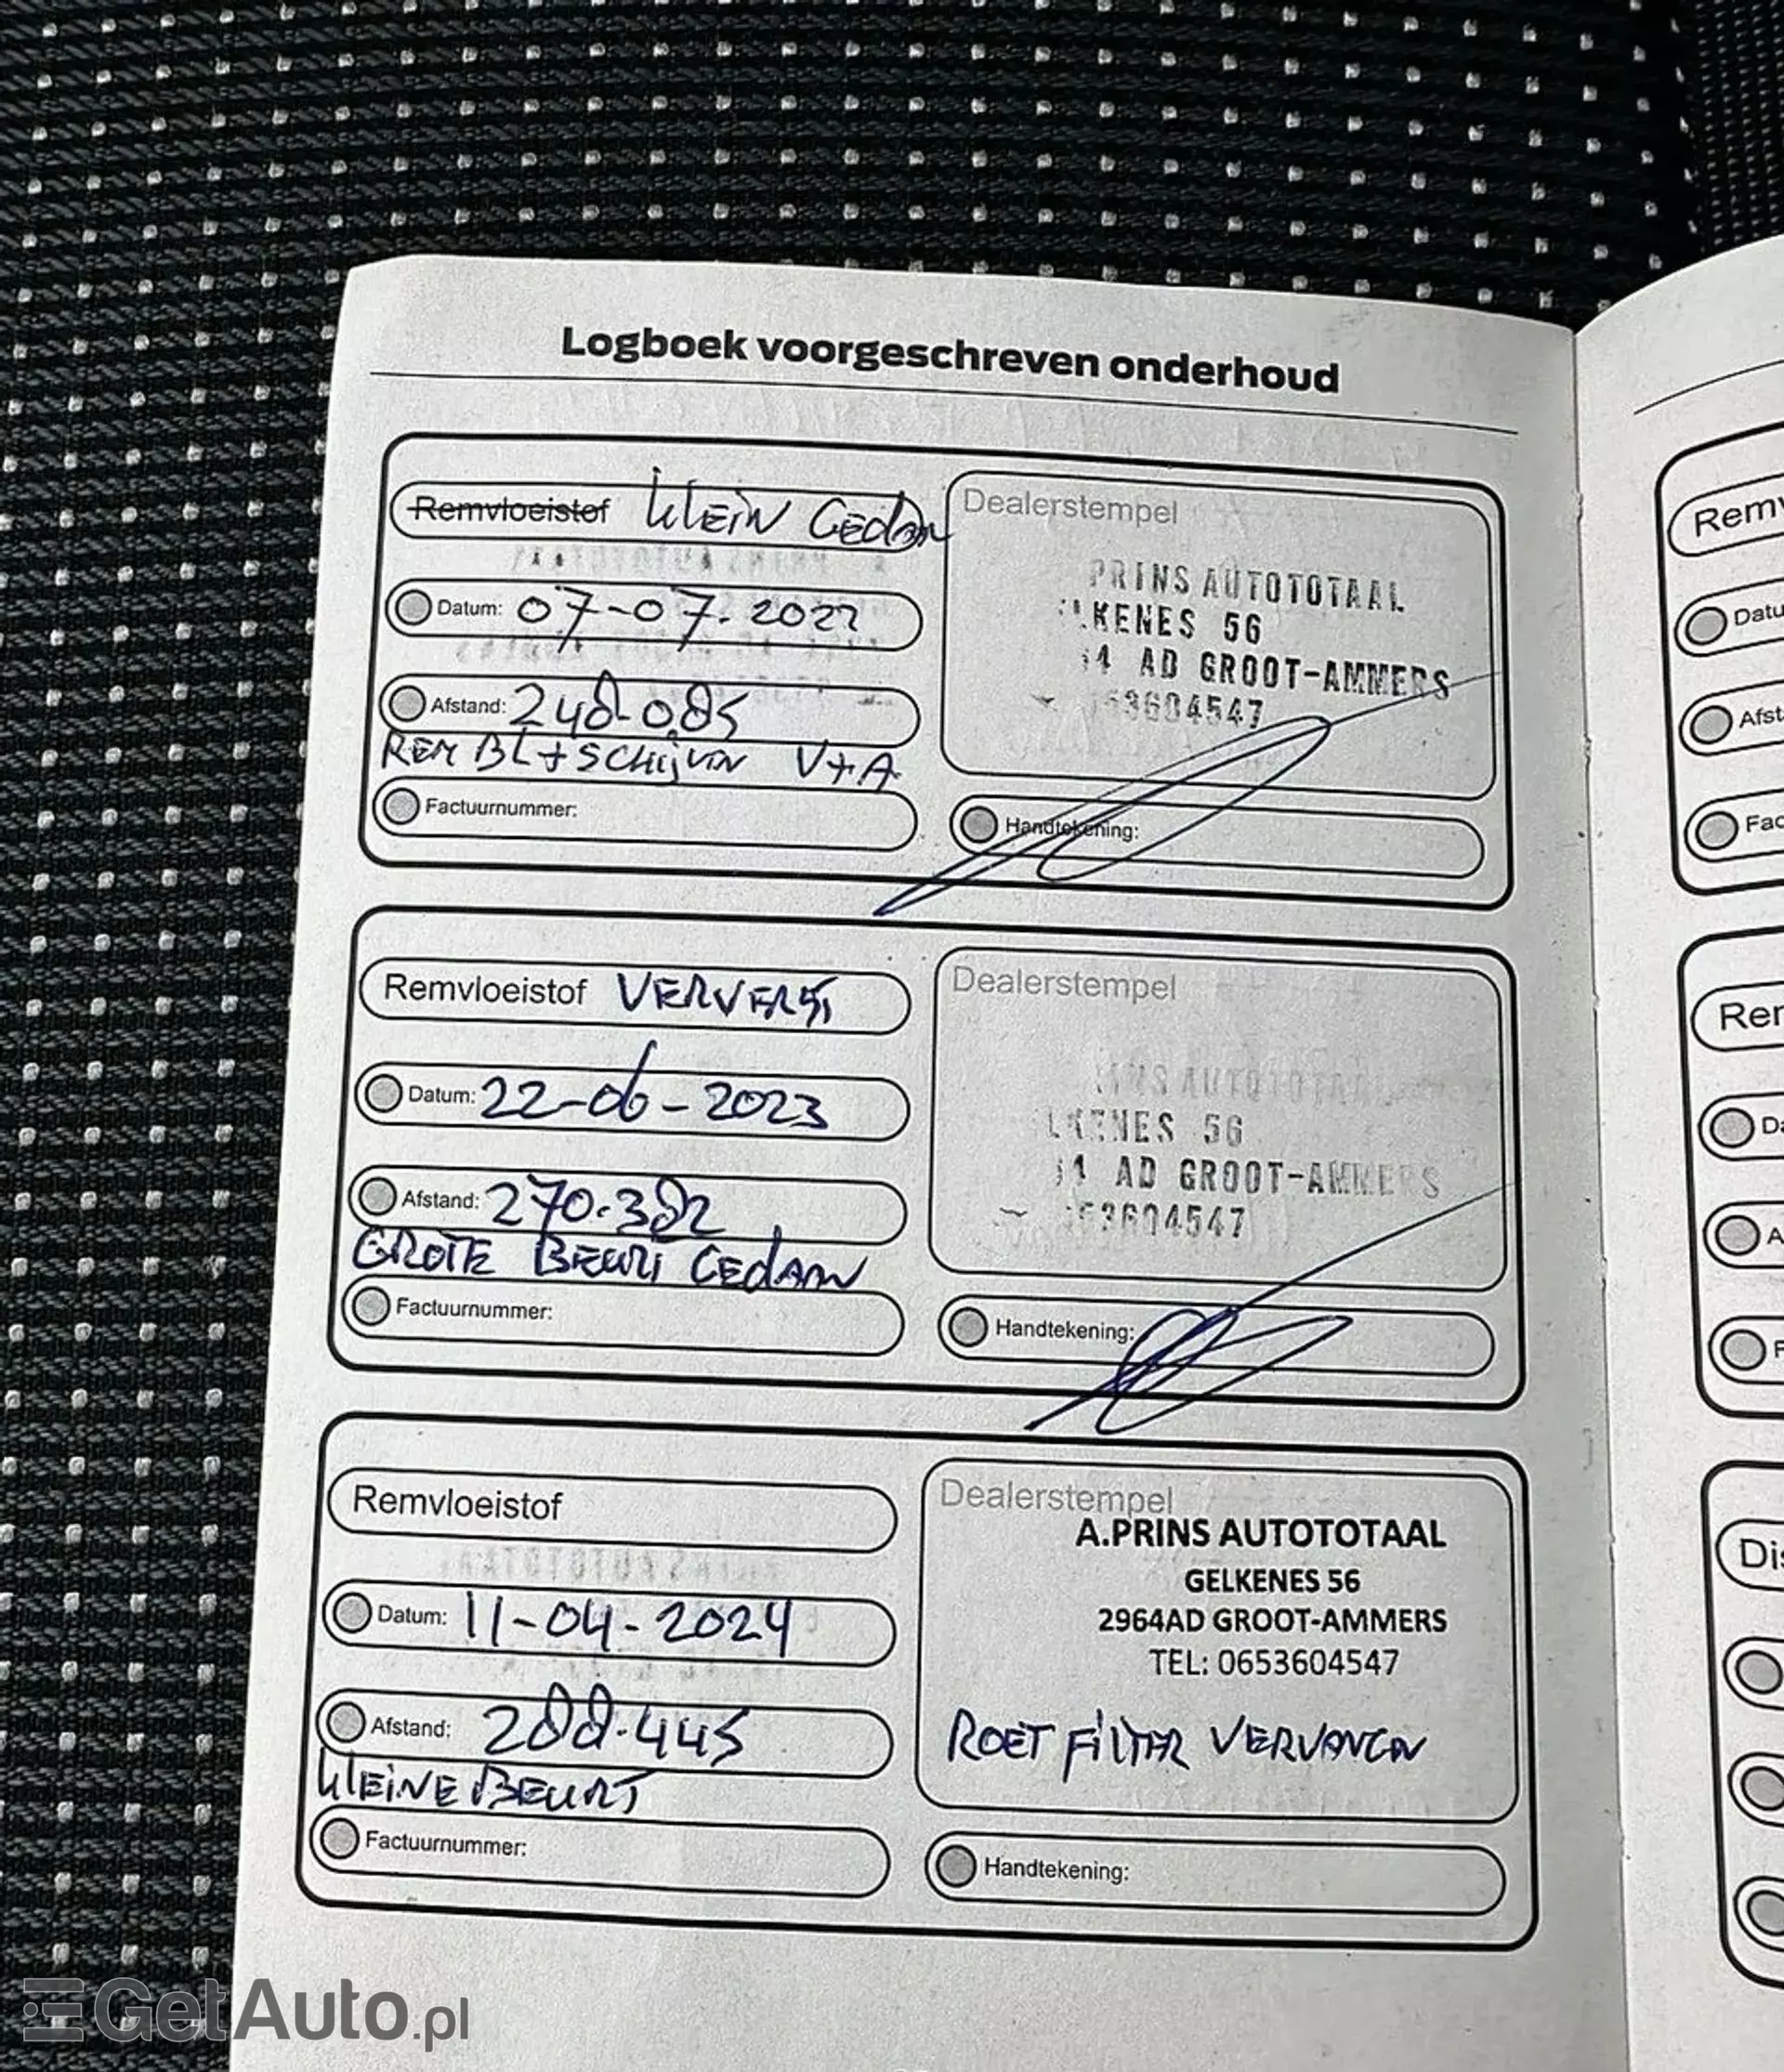 Logboek voorgeschreven onderhoud
Remvloeistof KLEIN GEdAN
Datum: 07-07-2022
Afstand: 248-085
REM BL + SCHIJVEN V+A
Factuurnummer:
Dealerstempel
PRINS AUTOTOTAAL
LKENES 56
64 AD GROOT-AMMERS
53604547
Handtekening:
Remvloeistof VERVERST
Datum: 22-06-2023
Afstand: 270.382
GROTE BEURT GEdAAN
Factuurnummer:
Dealerstempel
INS AUTOTOTAAL
LKENES 56
64 AD GROOT-AMMERS
53604547
Handtekening:
Remvloeistof
Datum: 11-04-2024
Afstand: 288.445
KLEINE BEURT
Factuurnummer:
Dealerstempel
A.PRINS AUTOTOTAAL
GELKENES 56
2964AD GROOT-AMMERS
TEL: 0653604547
ROET FILTER VERVANGEN
Handtekening:
Remv
Datu
Afst
Fac
Rer
Da
A
F
Dis
GetAuto.pl